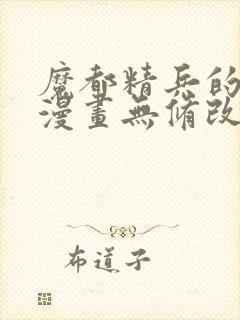 魔都精兵的
漫畫無修改
布道子